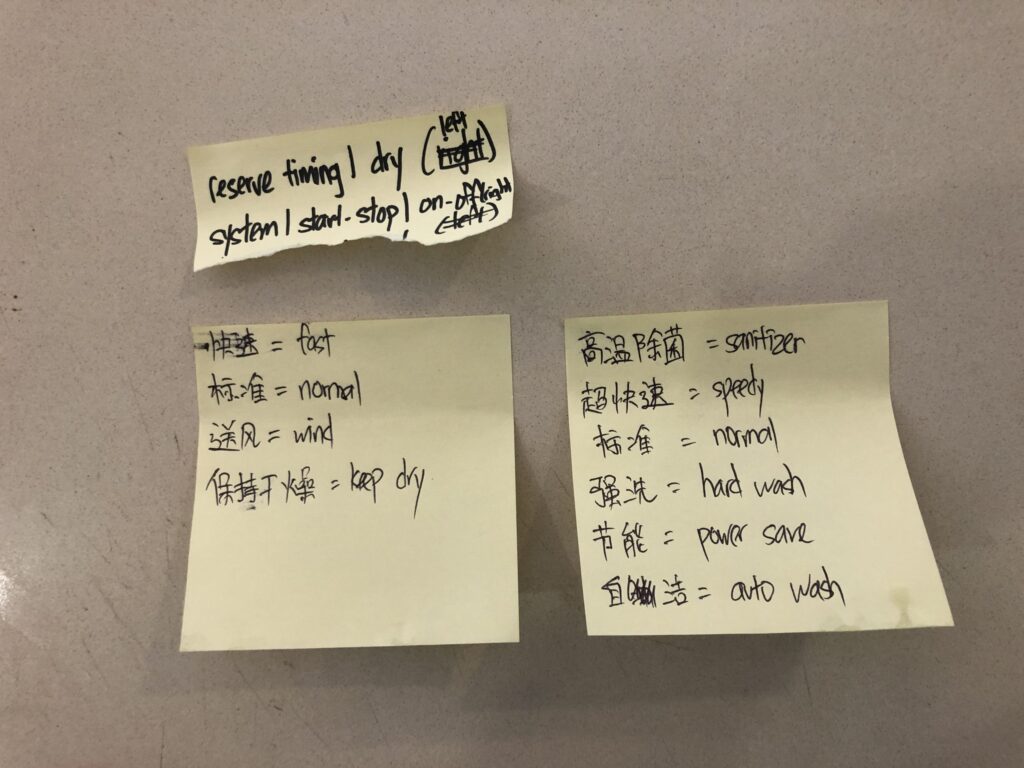 reserve timing | dry (left)
system | start-stop | on-off (right)
快速 = fast
标准 = normal
送风 = wind
保持干燥 = keep dry
高温除菌 = sanitizer
超快速 = speedy
标准 = normal
强洗 = hard wash
节能 = power save
自洁 = auto wash